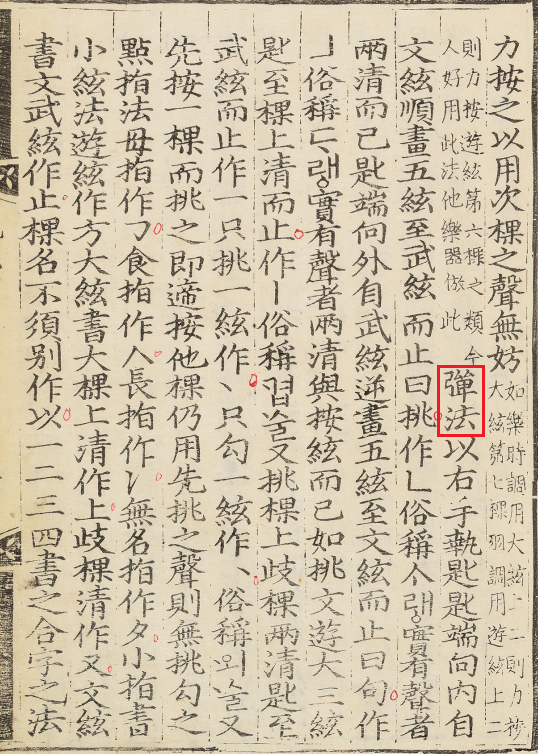 力按之以用次棵之聲無妨
如樂時調用大絃上二則力按
大絃第七棵羽調用遊絃上二
則力按遊絃第六棵之類今
人好用此法他樂器倣此
彈法以右手執匙匙端向內自
文絃順畫五絃至武絃而止曰挑作乚俗稱亽랭實有聲者
兩清而已匙端向外自武絃逆畫五絃至文絃而止曰勾作
亅俗稱ㄷ랭實有聲者兩清與按絃而已如挑文遊大三絃
匙至棵上清而止作丨俗稱習눌又挑棵上歧棵兩清匙至
武絃而止作一只挑一絃作丶只勾一絃作丶俗稱외눌又
先按一棵而挑之即遆按他棵仍用先挑之聲則無挑勾之
點指法母指作㇆食指作人長指作無名指作夕小指書
小絃法遊絃作方大絃書大棵上清作上歧棵清作文絃
書文武絃作止棵名不須別作以一二三四書之合字之法